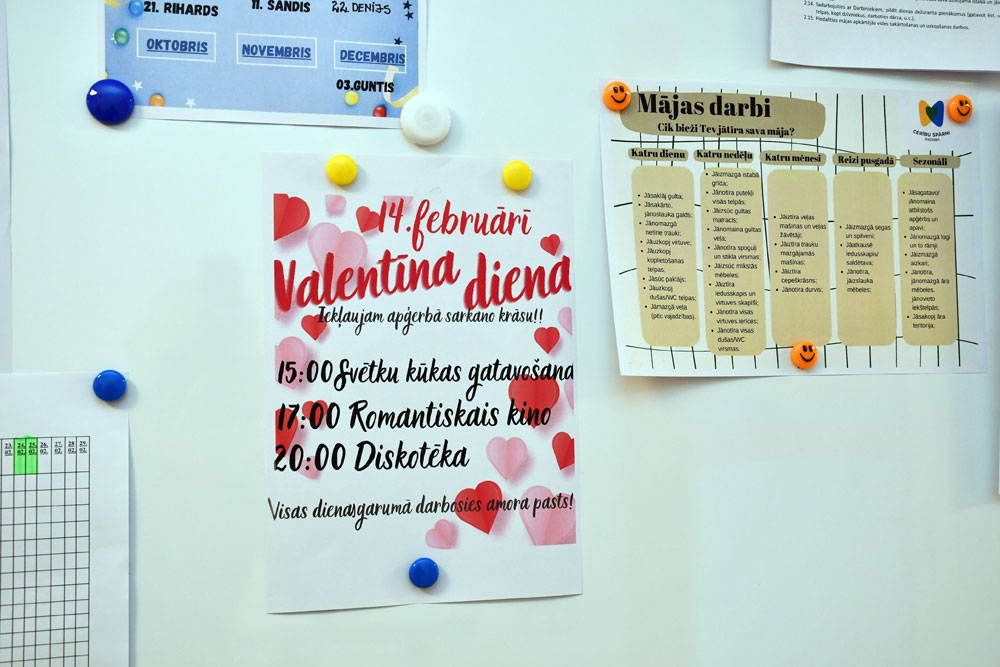 21. RIHARDS
11. SANDIS
22. DENIJS
OKTOBRIS
NOVEMBRIS
DECEMBRIS
03.GUNTIS
2.14. Sadarbojoties ar Darbiniekiem, pildīt dienas dežuranta pienākumus (gatavot ēst,
telpas, kopt dzīvniekus, darboties dārzā, u.c.).
2.15. Piedalīties mājas apkārtējās vides sakārtošanas un uzkopšanas darbos.
Mājas darbi
Cik bieži Tev jātīra sava māja?
CERĪBU SPĀRNI
Katru dienu
Jāsaklāj gulta;
Jāsakārto,
jānoslauka galds;
Jānomazgā
netīrie trauki;
Jāuzkopj virtuve;
Jāuzkopj
koplietošanas
telpas;
Jāsūc paklājs;
Jāuzkopj
dušas/WC telpas;
Jāmazgā veļa
(pēc vajadzības).
Katru nedēļu
Jāizmazgā istabā
grīda;
Jānotīra putekļi
visās telpās;
Jāizsūc gultas
matracis;
Jānomaina gultas
veļa;
Jānotīra spoguļi
un stikla virsmas;
Jāizsūc mīkstās
mēbeles;
Jāiztīra
ledusskapis un
virtuves skapīši;
Jānotīra visas
virtuves ierīces;
Jānotīra visas
dušas/WC
virsmas.
Katru mēnesi
Jāiztīra veļas
mašīnas un veļas
žāvētāji;
Jāiztīra trauku
mazgājamās
mašīnas;
Jāiztīra
cepeškrāsns;
Jānotīra durvis;
Reizi pusgadā
Jāizmazgā segas
un spilveni;
Jāatkausē
ledusskapis/
saldētava;
Jānotīra,
jāizslauka
mēbeles;
Sezonāli
Jāsagatavo/
jānomaina
atbilstošs
apģērbs un
apavi;
Jānomazgā logi
un to rāmji;
Jāizmazgā
aizkari;
Jānotīra,
jānomazgā āra
mēbeles,
jānoveto
iekštelpās;
Jāsakopj āra
teritorija;
14.februārī
Valentīna diena
Iekļaujam apģērbā sarkano krāsu!!
15:00 Svētku kūkas gatavošana
17:00 Romantiskais kino
20:00 Diskotēka
Visas dienas garumā darbosies amora pasts!
23. 24. 25. 26. 27. 28. 29.
02. 02. 02. 02. 02. 02. 02.